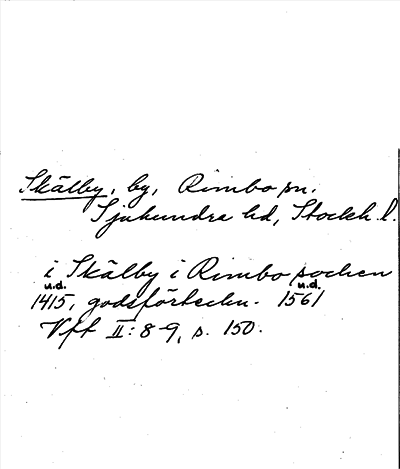 Skälby, by, Rimbo sn.
Sjuhundra hd, Stockh. l.
i Skälby i Rimbo socken
u.d. u.d.
1415, godsförteckn. 1561
Vfft II: 8-9, s. 150.